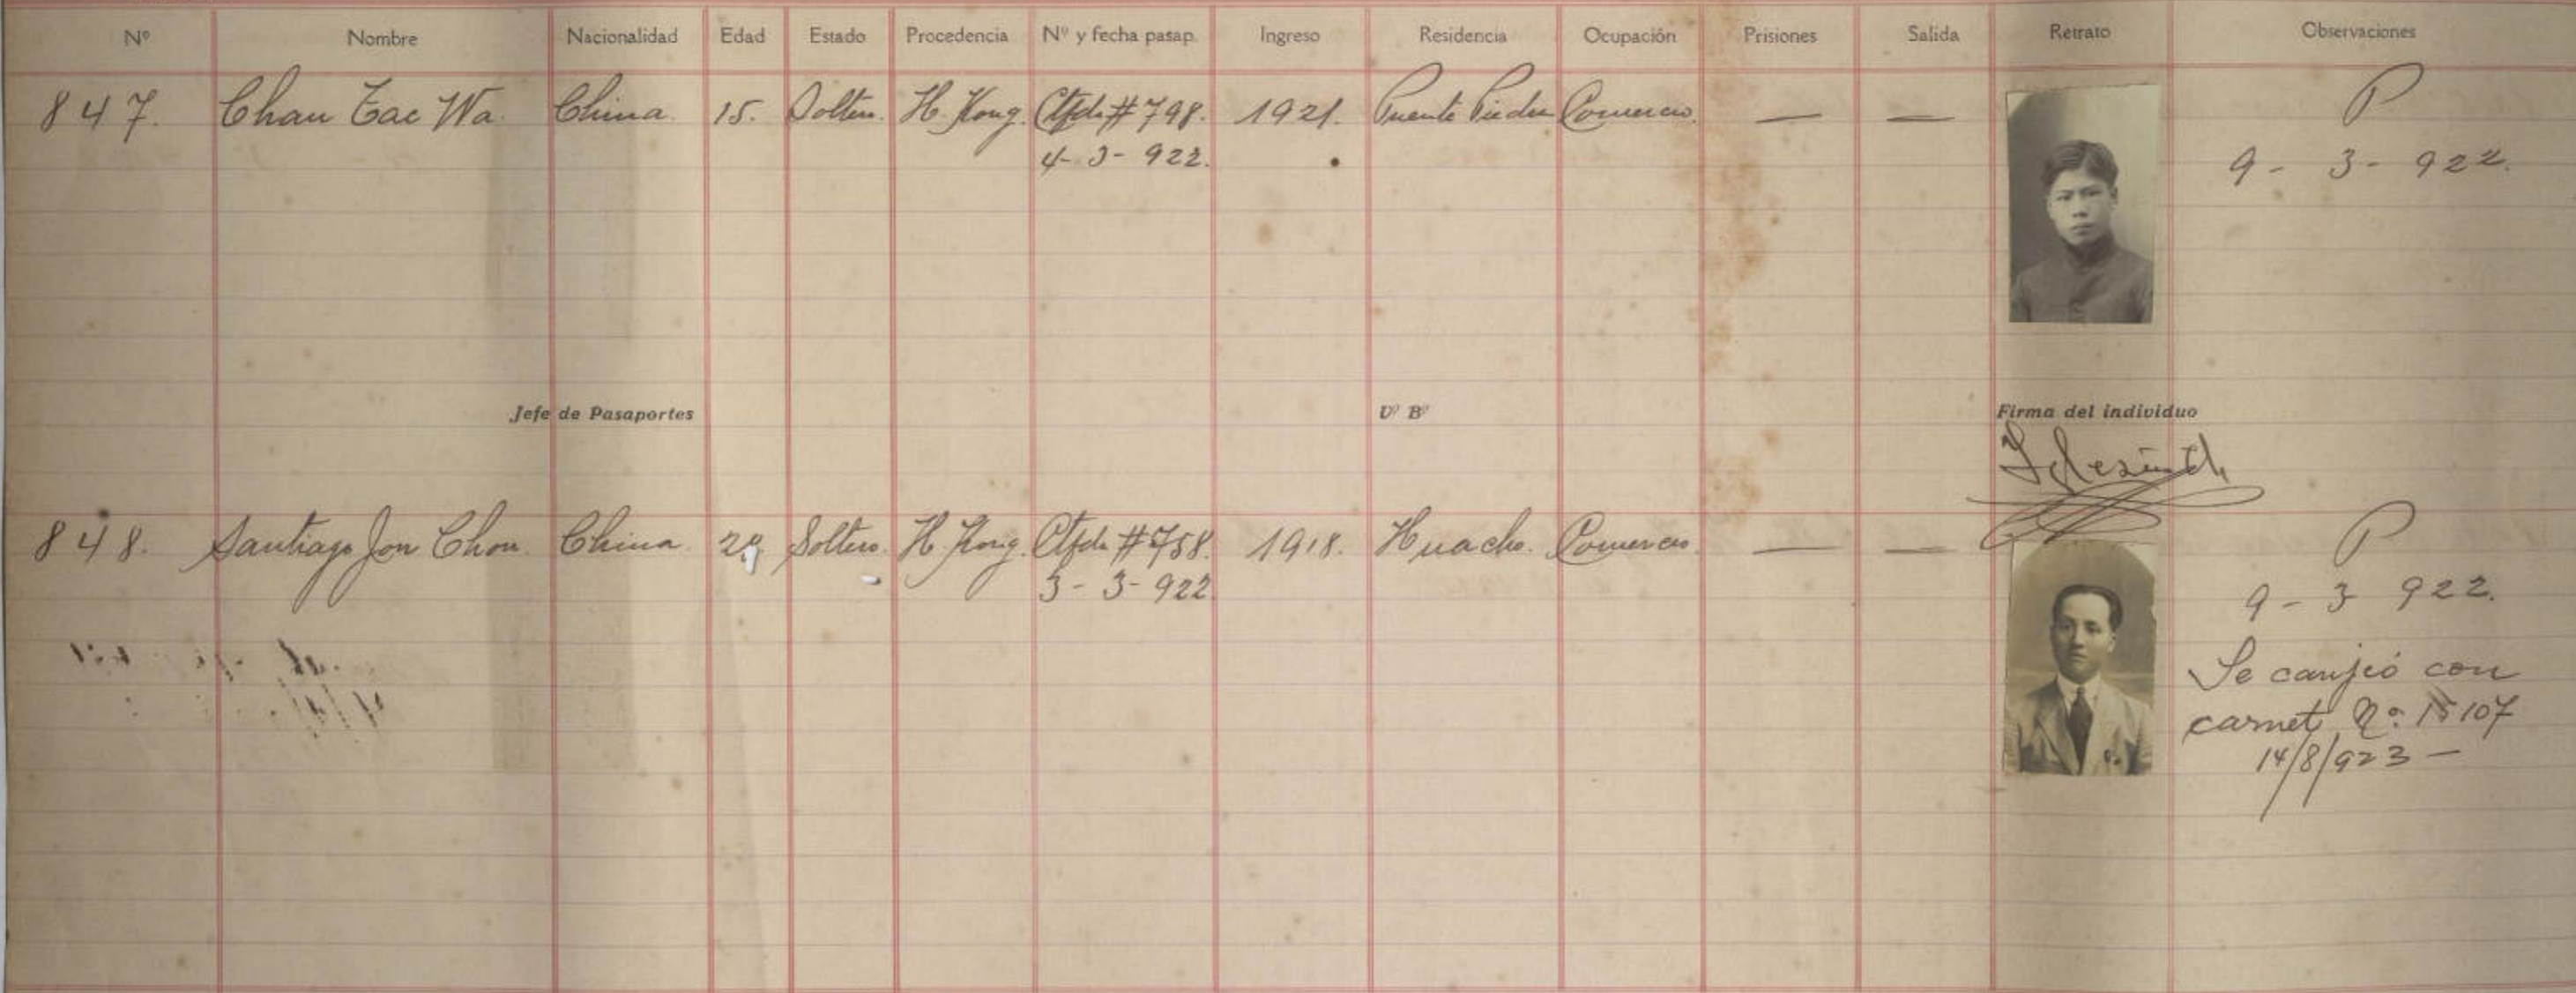 Nº Nombre Nacionalidad Edad Estado Procedencia Nº y fecha pasap. Ingreso Residencia Ocupación Prisiones Salida Retrato Observaciones
847. Chan Tac Wa. China. 15. Soltero. H. Kong. Ctfdo # 798. 1921. Puente Piedra Comercio. — — P
4-3-922. 9-3-922.
Jefe de Pasaportes Vº Bº Firma del individuo
848. Santiago Jon Chon. China. Soltero. H. Kong. Ctfdo # 758. 1918. Huacho. Comercio. — — P
3-3-922 9-3 922.
Se canjeó con
carnet Nº. 15107
14/8/923 —